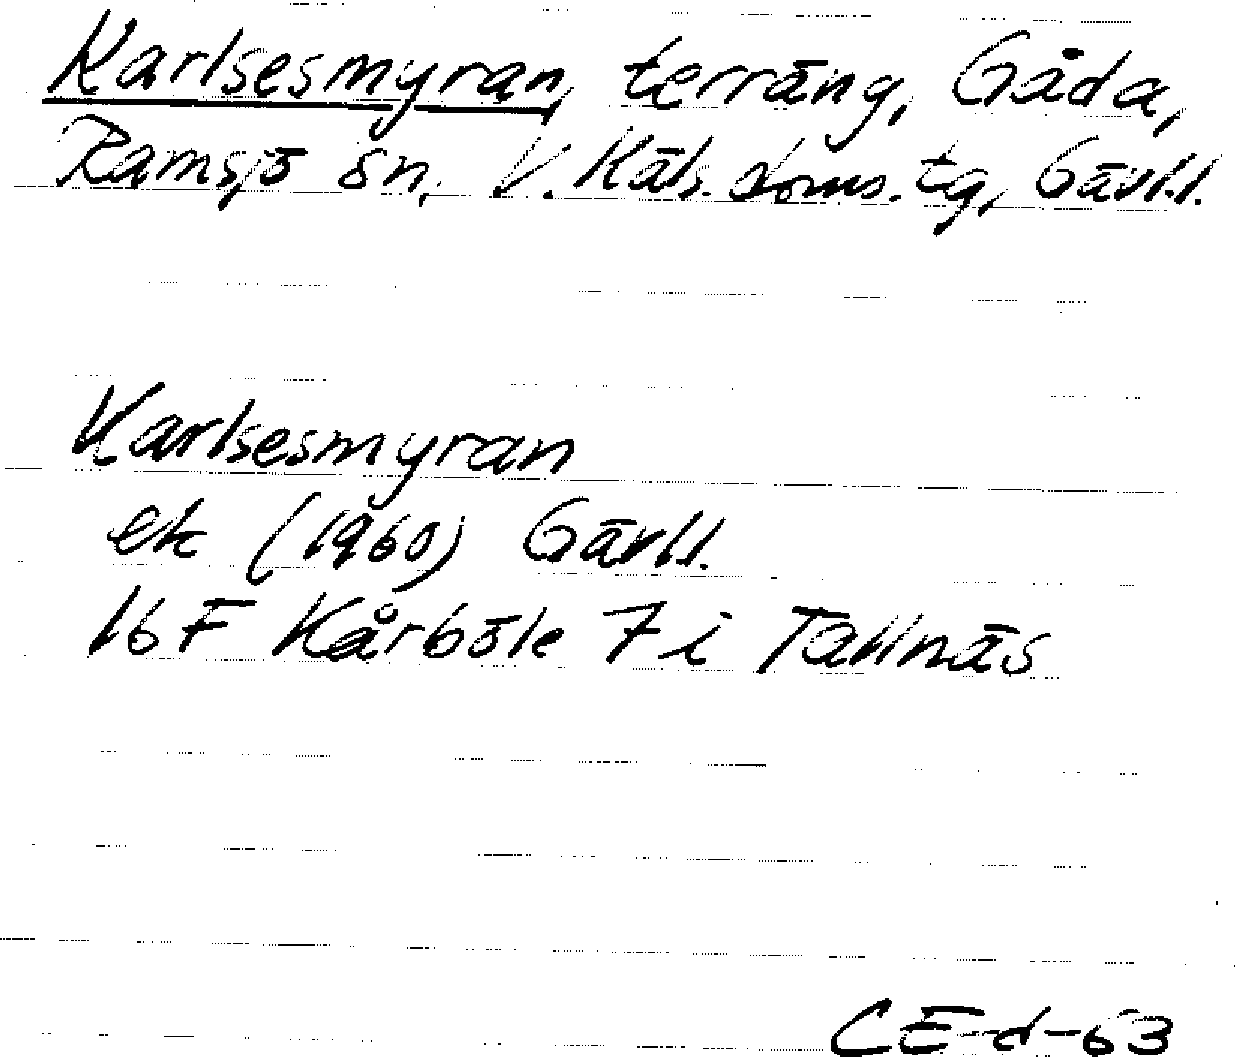 Karlsesmyran, terräng, Gåda,
Ramsjö sn, V. Häls. doms. tg, Gävl.l.
Karlsesmyran
ek (1960) Gävl.l.
16 F Kårböle 7 i Tallnäs
CE-d-63